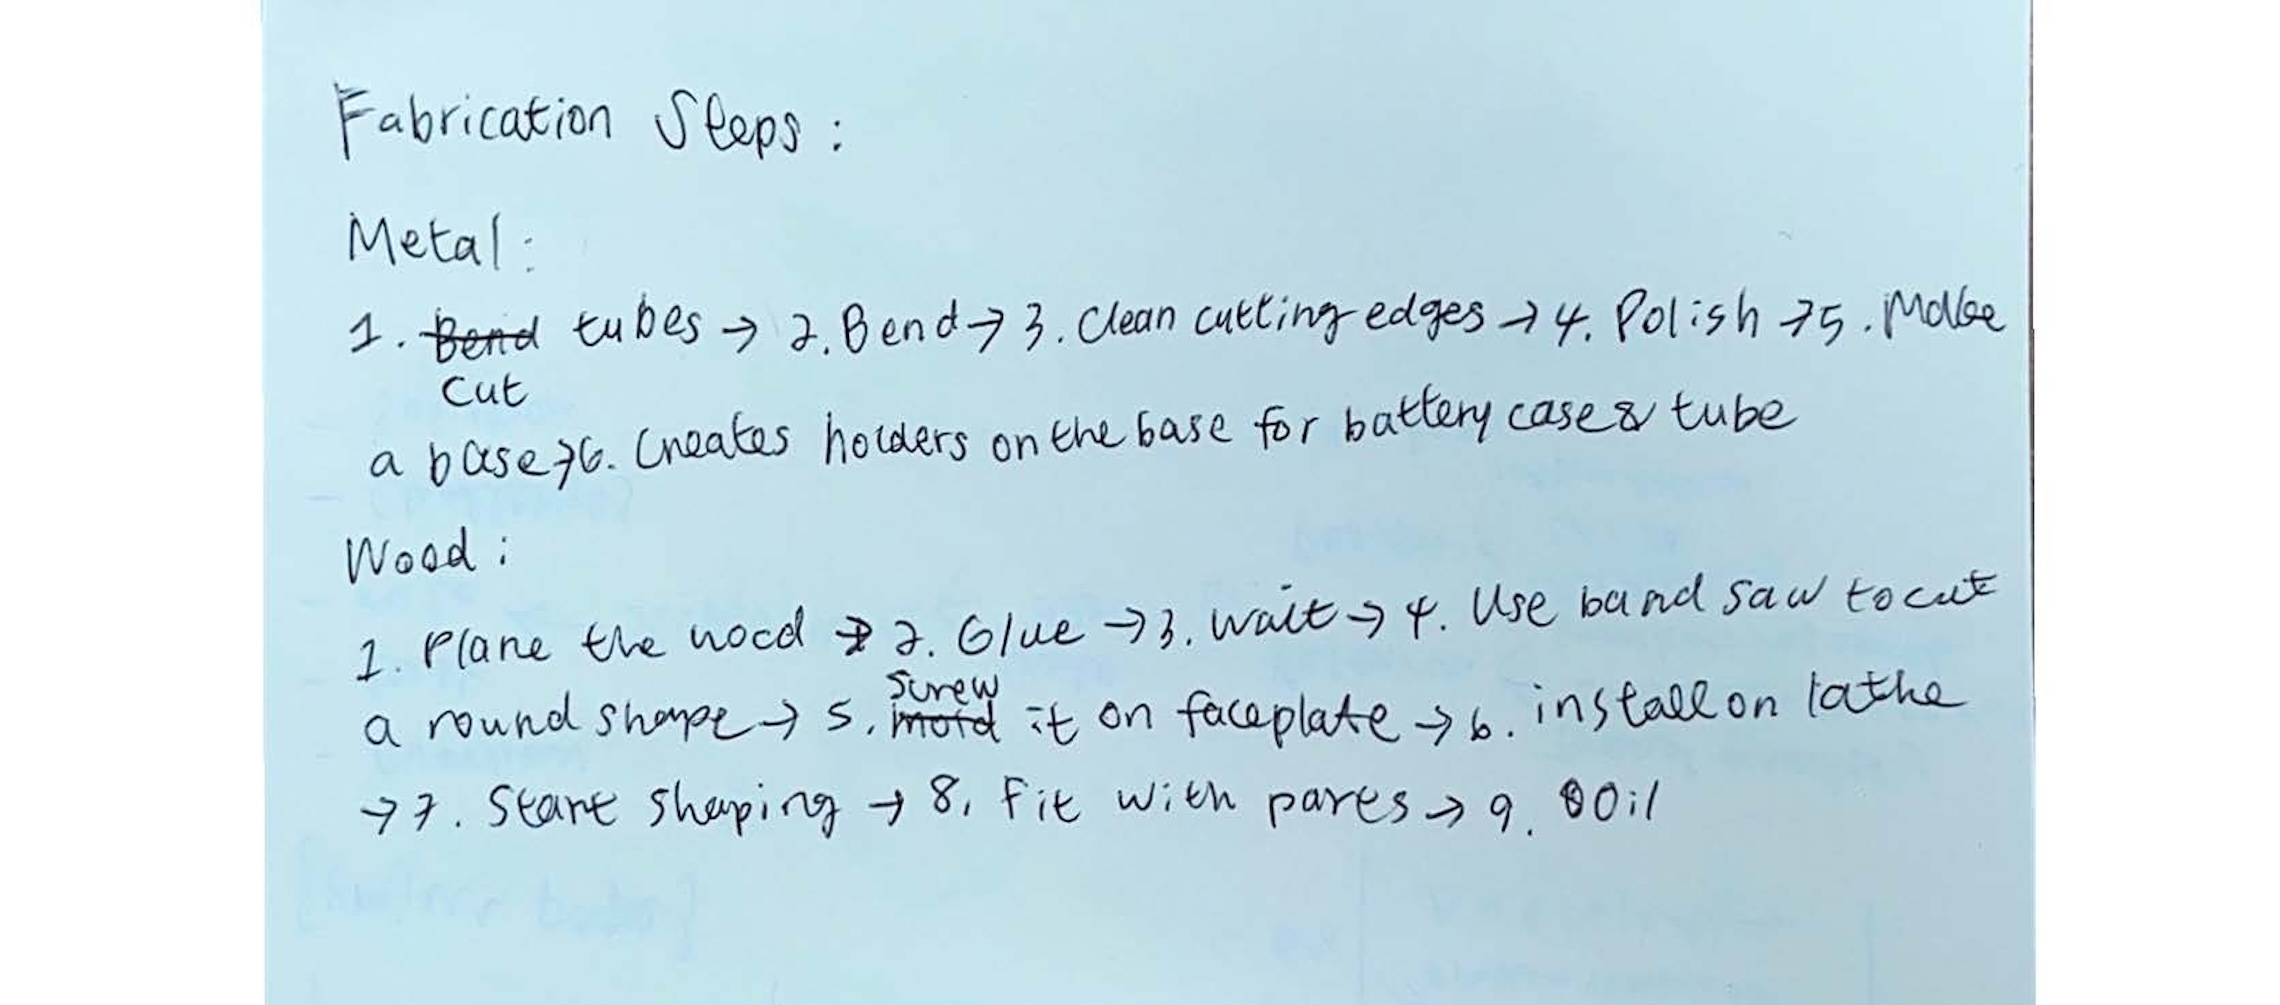 Fabrication Steps:
Metal:
1. Bend tubes → 2. Bend → 3. Clean cutting edges → 4. Polish → 5. Make
cut
a base → 6. Creates holders on the base for battery case & tube
Wood:
1. Plane the wood → 2. Glue → 3. wait → 4. Use band saw to cut
screw
a round shape → 5. mord it on faceplate → 6. install on lathe
→ 7. Start shaping → 8. Fit with parts → 9. Oil